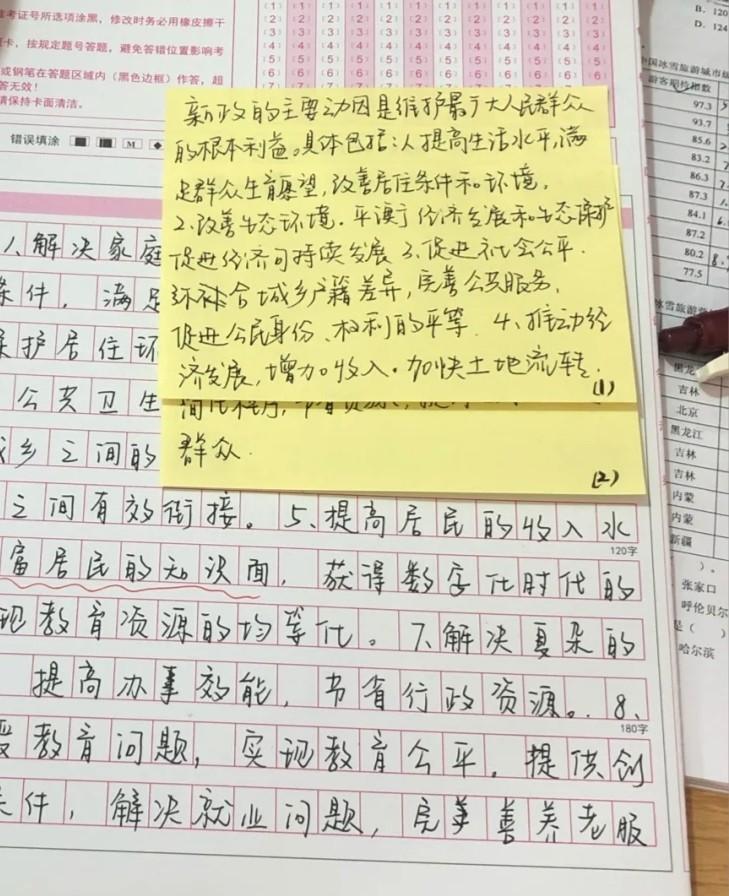 准考证号所选项涂黑，修改时务必用橡皮擦干
卡，按规定题号答题，避免答错位置影响考
或钢笔在答题区域内（黑色边框）作答，超
答无效！
请保持卡面清洁。
错误填涂
新政的主要动因是维护最广大人民群众
的根本利益。具体包括：1、提高生活水平，满
足群众生育愿望，改善居住条件和环境。
2、改善生态环境。平衡了经济发展和生态保护
促进经济可持续发展 3、促进社会公平。
弥补合城乡户籍差异，完善公共服务，
促进公民身份、权利的平等。4、推动经
济发展，增加收入。加快土地流转。
(1)
群众。
(2)
1、解决家庭
条件，满足
保护居住环
公共卫生
城乡之间的
之间有效衔接。5、提高居民的收入水
120字
富居民的知识面，获得数字化时代的
现教育资源的均等化。7、解决复杂的
提高办事效能，节省行政资源。8、
180字
教育问题，实现教育公平。提供创
条件，解决就业问题，完善善养老服
B. 120
D. 124
中国冰雪旅游城市
游客期待指数
97.3
93.7
85.6
83.2
86.3
87.3
84.1
87.2
80.2
77.5
冰雪旅游
黑龙
吉林
北京
黑龙江
吉林
吉林
内蒙
内蒙
新疆
）。
张家口
呼伦贝尔
是（ ）
哈尔滨